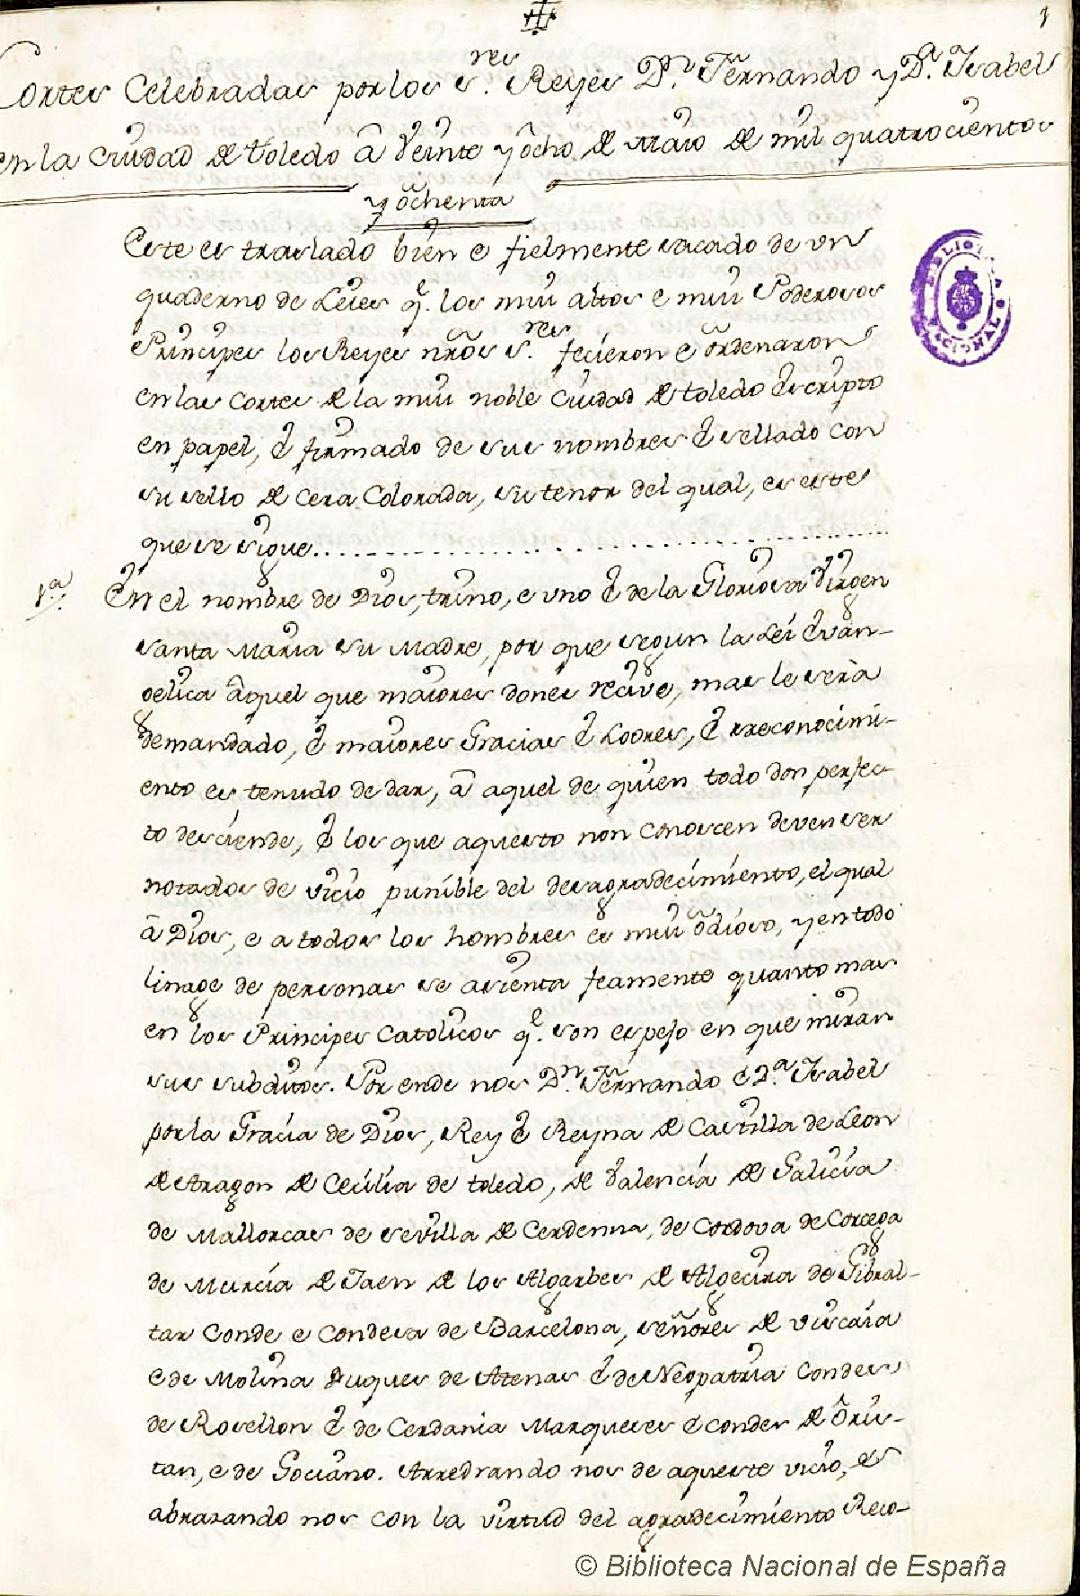 1
Cortes Celebradas por los s.res Reyes D.n Fernando y D.a Isabel
en la Ciudad de Toledo a Veinte y ocho de Maio de mil quatrocientos
y ochenta
BIBLIOTECA NACIONAL
Este es traslado bien e fielmente sacado de un
quaderno de Leies q.e los mui altos e mui Poderosos
Principes los Reyes nros s.res fecieron e ordenaron
en las Cortes de la mui noble Ciudad de toledo escripto
en papel, é firmado de sus nombres é sellado con
su sello de cera Colorada, su tenor del qual, es este
que se sigue
1.a En el nombre de Dios, trino, e uno é de la Gloriosa Virgen
santa Maria su Madre, por que segun la Lei Evan-
gelica aquel que maiores dones recive, mas le será
demandado, é maiores Gracias é Loores, é rreconocimi-
ento es tenudo de dar, a aquel de quien todo don perfec-
to desciende, é los que aquesto non conoscen deven ser
notados de vicio punible del desagradecimiento, el qual
a Dios, e a todos los hombres es mui odioso, y en todo
linage de personas se asienta feamente quanto mas
en los Principes Catolicos q.e son espejo en que miran
sus subditos. Por ende nos D.n Fernando é D.a Isabel
por la Gracia de Dios, Rey é Reyna de Castilla de Leon
de Aragon de Cecilia de toledo, de Valencia de Galicia
de Mallorcas de sevilla de Cerdenna, de Cordova de Corcega
de Murcia de Jaen de los Algarbes de Algecira de Gibral-
tar Conde e Condesa de Barcelona, señores de viscaia
e de Molina Duques de Atenas é de Neopatria Condes
de Rosellon é de Cerdania Marqueses é condes de Oris-
tan, e de Gociano. Arredrando nos de aqueste vicio, é
abrazando nos con la virtud del agradecimiento Reco-
© Biblioteca Nacional de España